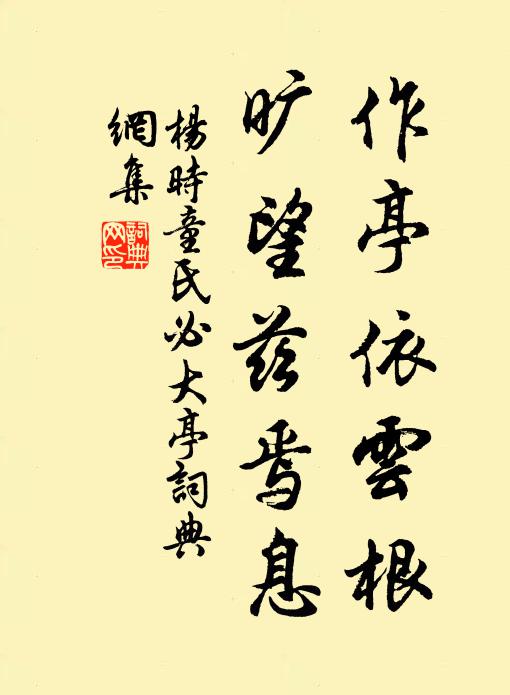 作亭依雲根
旷望兹焉息
楊時童氏必大亭詞典
網集
詞典
网印